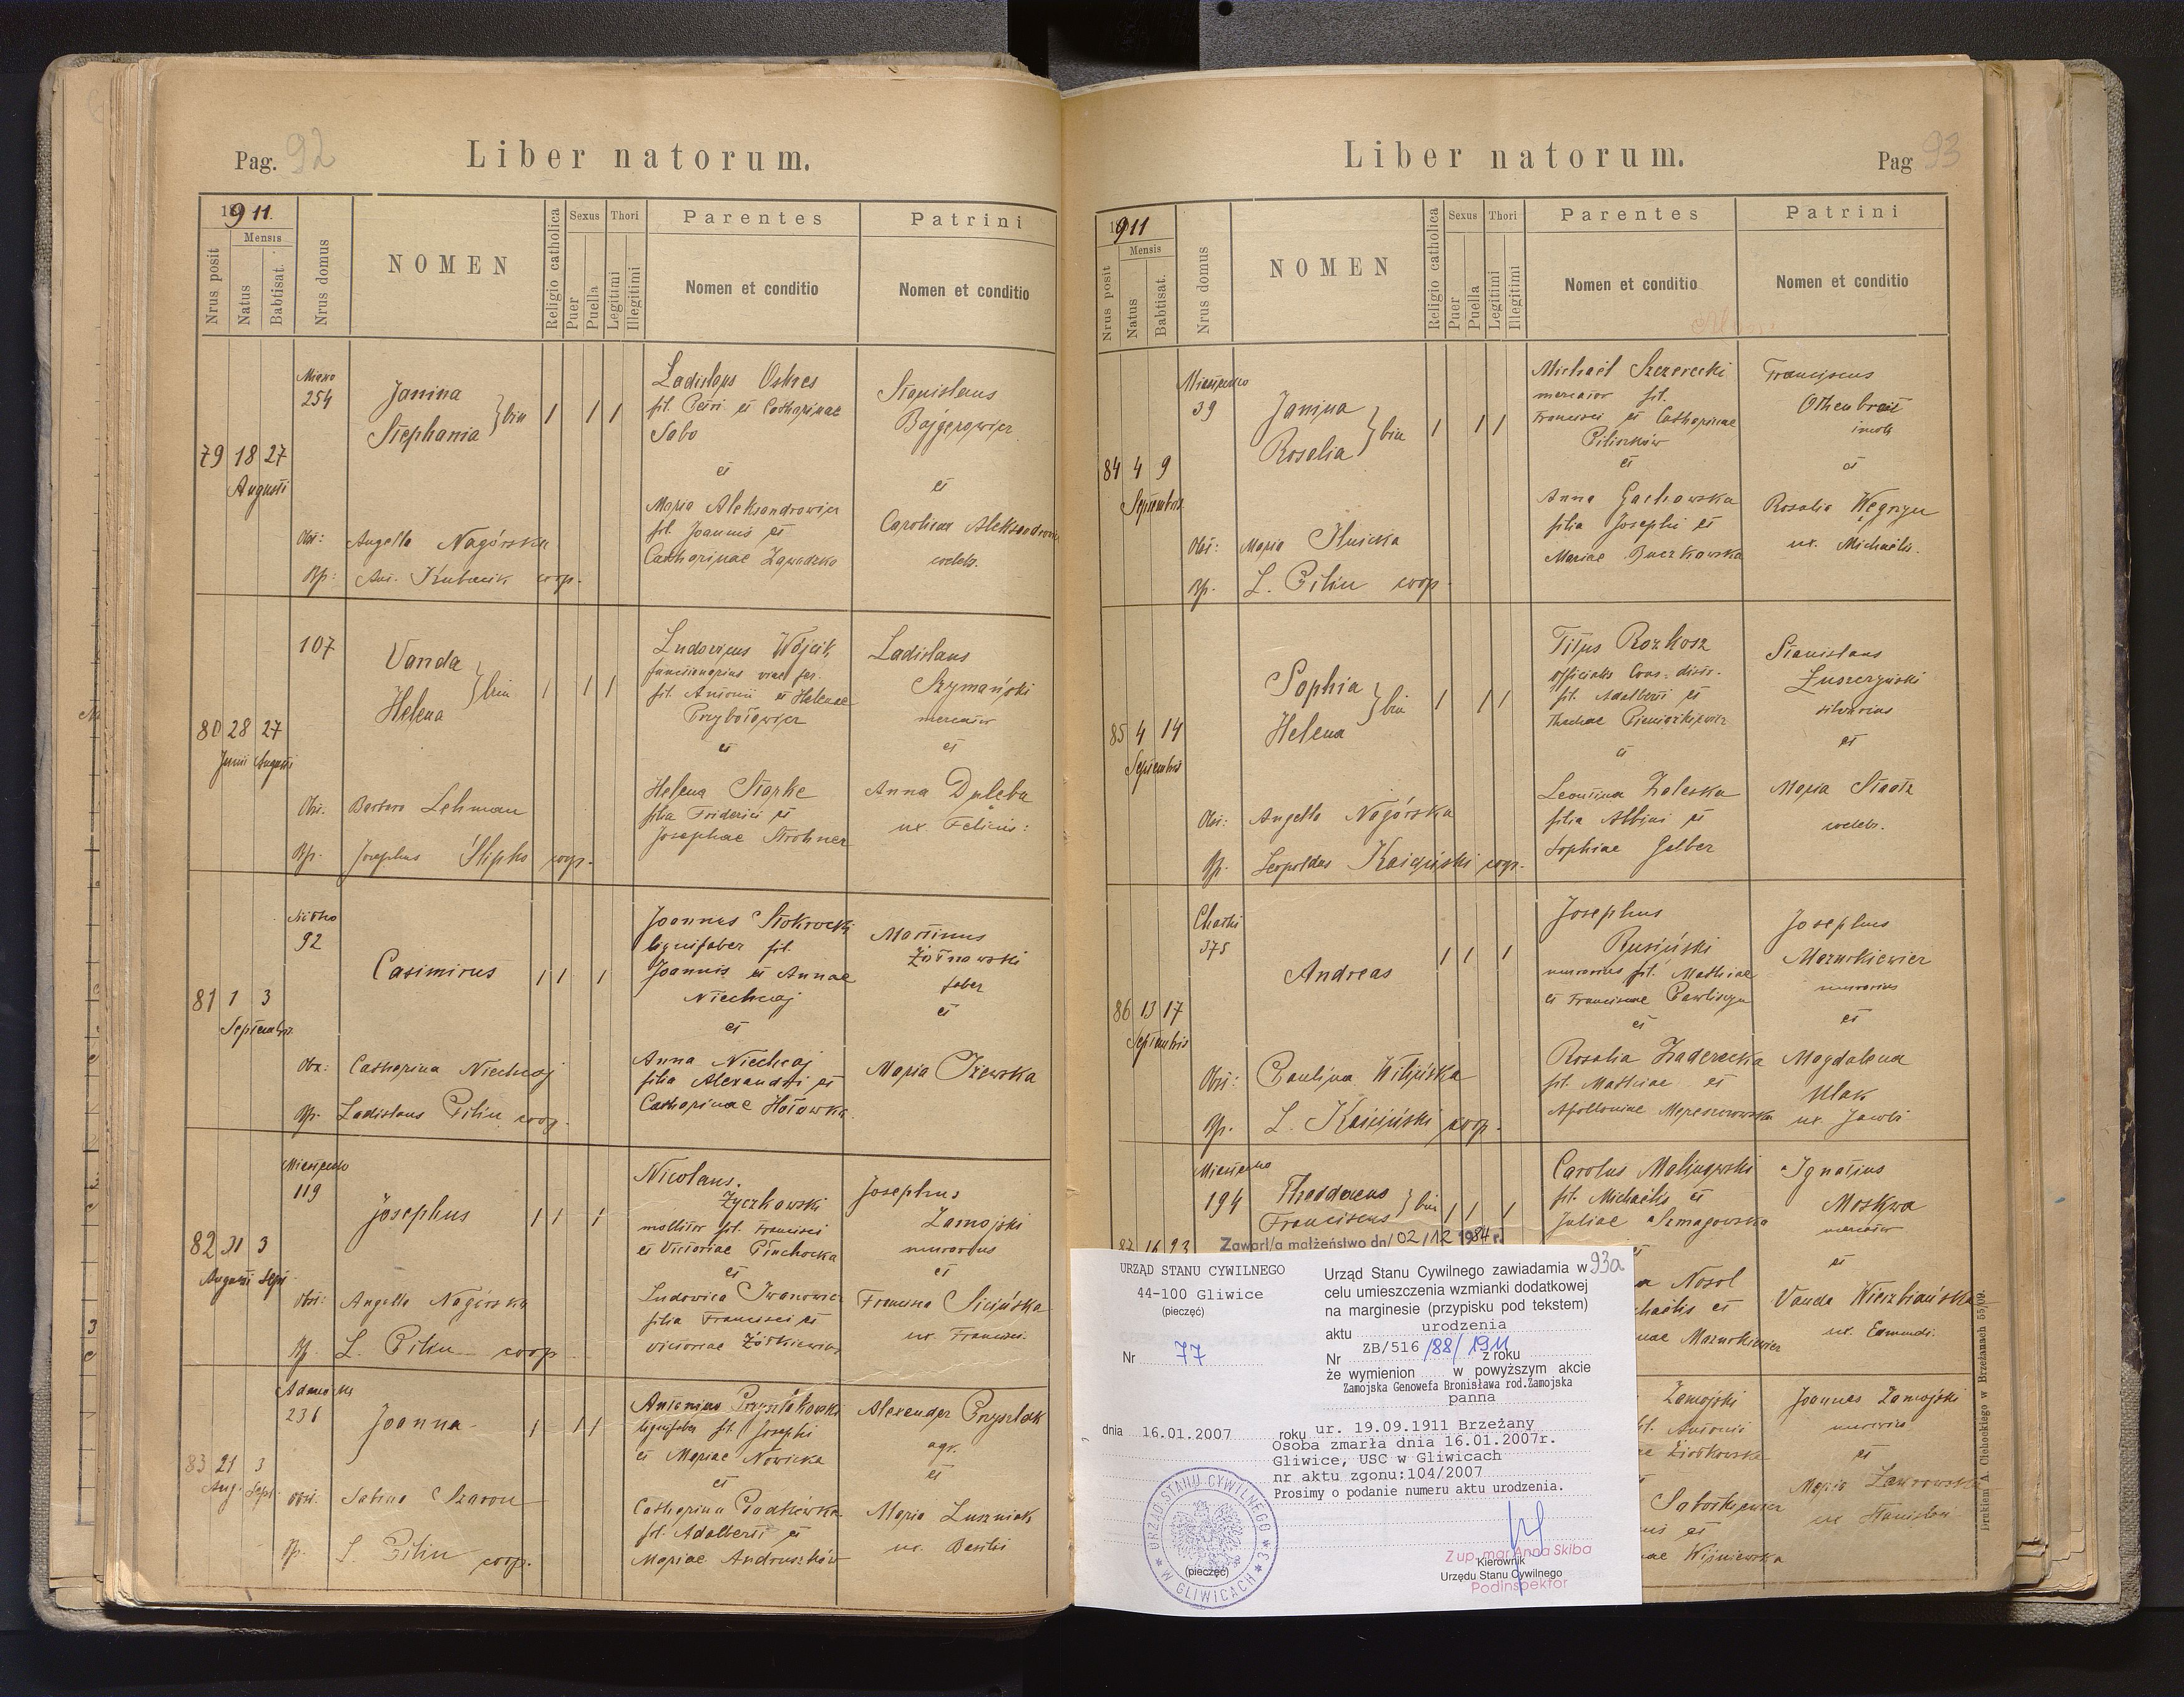 Pag. 92
Liber natorum.
1911.
Nrus posit
Mensis
Natus
Babtisat.
Nrus domus
NOMEN
Religio catholica
Sexus
Puer
Puella
Thori
Legitimi
Illegitimi
Parentes
Nomen et conditio
Patrini
Nomen et conditio
79 18 27
Augusti
254
Janina
Stephania } bin
1 1 1
Ladislaus
fil. Petri et Catharinae
Sabo
et
Maria Aleksandrowicz
fil. Joannis et
Catharinae Zawadzka
Stanislaus
et
Carolina
Obst: Angella Nagórska
Bp: Ant. Kubacik coop.
80 28 27
Junii Augusti
107
Vanda
Helena } bin
1 1 1
Ludovicus Wójcik
fil. Antonii et Helenae
et
Helena Starke
filia Friderici et
Josephae Strohner
Ladislaus
Szymański
mercator
et
Anna Duleba
ux. Felicis:
Obst. Barbara Lehman
Bp. Josephus Ślipko coop.
81 1 3
Septembr.
92
Casimirus
1 1 1
Joannes Stokrocki
lignifaber fil.
Joannis et Annae
Niechcaj
et
Anna Niechcaj
filia Alexandri et
Catharinae Hołowka
Martinus
Żółnowski
faber
et
Maria
Obst: Catharina Niechcaj
Bp. Ladislaus Pilin coop.
82 31 3
Augusti Sept.
Miasteczko
119
Josephus
1 1 1
Nicolaus
Życzkowski
molitor fil. Francisci
et Victoriae
et
Ludovica Iwanowicz
filia Francisci et
Victoriae Żółkiewicz
Josephus
Zamojski
murarius
et
Francisca Sicińska
ux. Francisci.
Obst: Angella Nagórska
Bp. L. Pilin coop
83 21 3
Aug. Sept.
Adamówka
236
Joanna
1 1 1
Antonius
lignifaber fil. Josephi
et Mariae Nowicka
et
Catharina
fil. Adalberti et
Mariae Andruszków
Alexander Przyszlak
agr.
et
Maria Luszniak
ux. Basilii
Obst. Sabina Szaron
Bp. L. Pilin coop.
Liber natorum.
Pag 93
1911
Nrus posit
Mensis
Natus
Babtisat.
Nrus domus
NOMEN
Religio catholica
Sexus
Puer
Puella
Thori
Legitimi
Illegitimi
Parentes
Nomen et conditio
Patrini
Nomen et conditio
84 4 9
Septembris
Miasteczko
39
Janina
Rosalia } bin
1 1 1
Michaël Szczerecki
mercator fil.
Francisci et Catharinae
et
Anna Gachowska
filia Josephi et
Mariae Buczkowska
Franciscus
Othenbreit
et
Rosalia Węgrzyn
ux. Michaëlis.
Obst: Maria Ilnicka
Bp. L. Pilin coop.
85 4 14
Septembris
Sophia
Helena } bin
1 1 1
Titus Rozkosz
fil. Adalberti et
et
Leontina Zaleska
filia Albini et
Sophiae Gelber
Stanislaus
Łuszczyński
silvarius
et
Maria Staatz
coelebs.
Obst: Angella Nagórska
Bp. Leopoldus coop.
86 13 17
Septembris
Chatki
375
Andreas
1 1 1
Josephus
Rusiński
murarius fil. Mathiae
et Franciscae Pawliszyn
et
Rosalia Zaderecka
fil. Mathiae et
Apolloniae
Josephus
Mazurkiewicz
murarius
et
Magdalena
Ulak
Obst: Paulina Wilińska
Bp. L. coop.
87 16 23
Miasteczko
194
Theodorus
Franciscus } bin
1 1 1
Carolus Malinowski
fil. Michaëlis et
Juliae Szmagowska
et
a Nosol
chaëlis et
nae Mazurkiewicz
Ignatius
Moskwa
mercator
et
Vanda Wierzbiańska
ux. Edmundi.
Zawarł/a małżeństwo dn/02/12 1934 r.
Zamojski
fil. Antonii
ae Ziółkowska
nis et
nae Wiśniewska
Joannes Zamojski
murarius
et
Maria
ux Stanislai
Drukiem A. Cichockiego w Brzeżanach 555/09.
URZĄD STANU CYWILNEGO
44-100 Gliwice
(pieczęć)
Nr 77
dnia 16.01.2007 roku
93a
Urząd Stanu Cywilnego zawiadamia w
celu umieszczenia wzmianki dodatkowej
na marginesie (przypisku pod tekstem)
aktu urodzenia
Nr ZB/516/88/1911 z roku
że wymienion w powyższym akcie
Zamojska Genowefa Bronisława rod.Zamojska
panna
ur. 19.09.1911 Brzeżany
Osoba zmarła dnia 16.01.2007r.
Gliwice, USC w Gliwicach
nr aktu zgonu:104/2007
Prosimy o podanie numeru aktu urodzenia.
URZĄD STANU CYWILNEGO * 3 * W GLIWICACH *
(pieczęć)
Z up. mgr Anna Skiba
Kierownik
Urzędu Stanu Cywilnego
Podinspektor